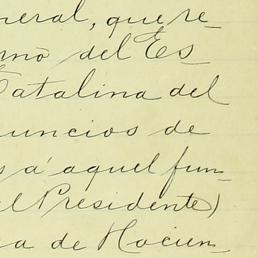 neral, que re-
rno del Es
Catalina del
nuncios de
s á aquel fun-
el Presidente)
a de Hacien-